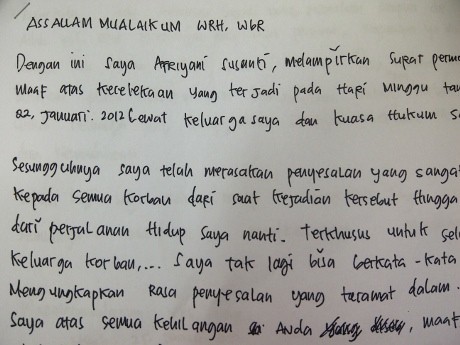 ASSALAM MUALAIKUM WRH, WBR
Dengan ini saya Afriyani susanti, melampirkan surat permo
maaf atas kecelekaan yang terjadi pada Hari Minggu tan
22, januari. 2012 Lewat keluarga saya dan kuasa Hukum sa
Sesungguhnya saya telah merasakan penyesalan yang sangat
kepada semua korban dari saat kejadian tersebut hingga
dari perjalanan Hidup saya nanti. Terkhusus untuk sel
keluarga korban,... saya tak lagi bisa berkata-kata
Mengungkapkan Rasa penyesalan yang teramat dalam.
Saya atas semua kehilangan Anda, maaf